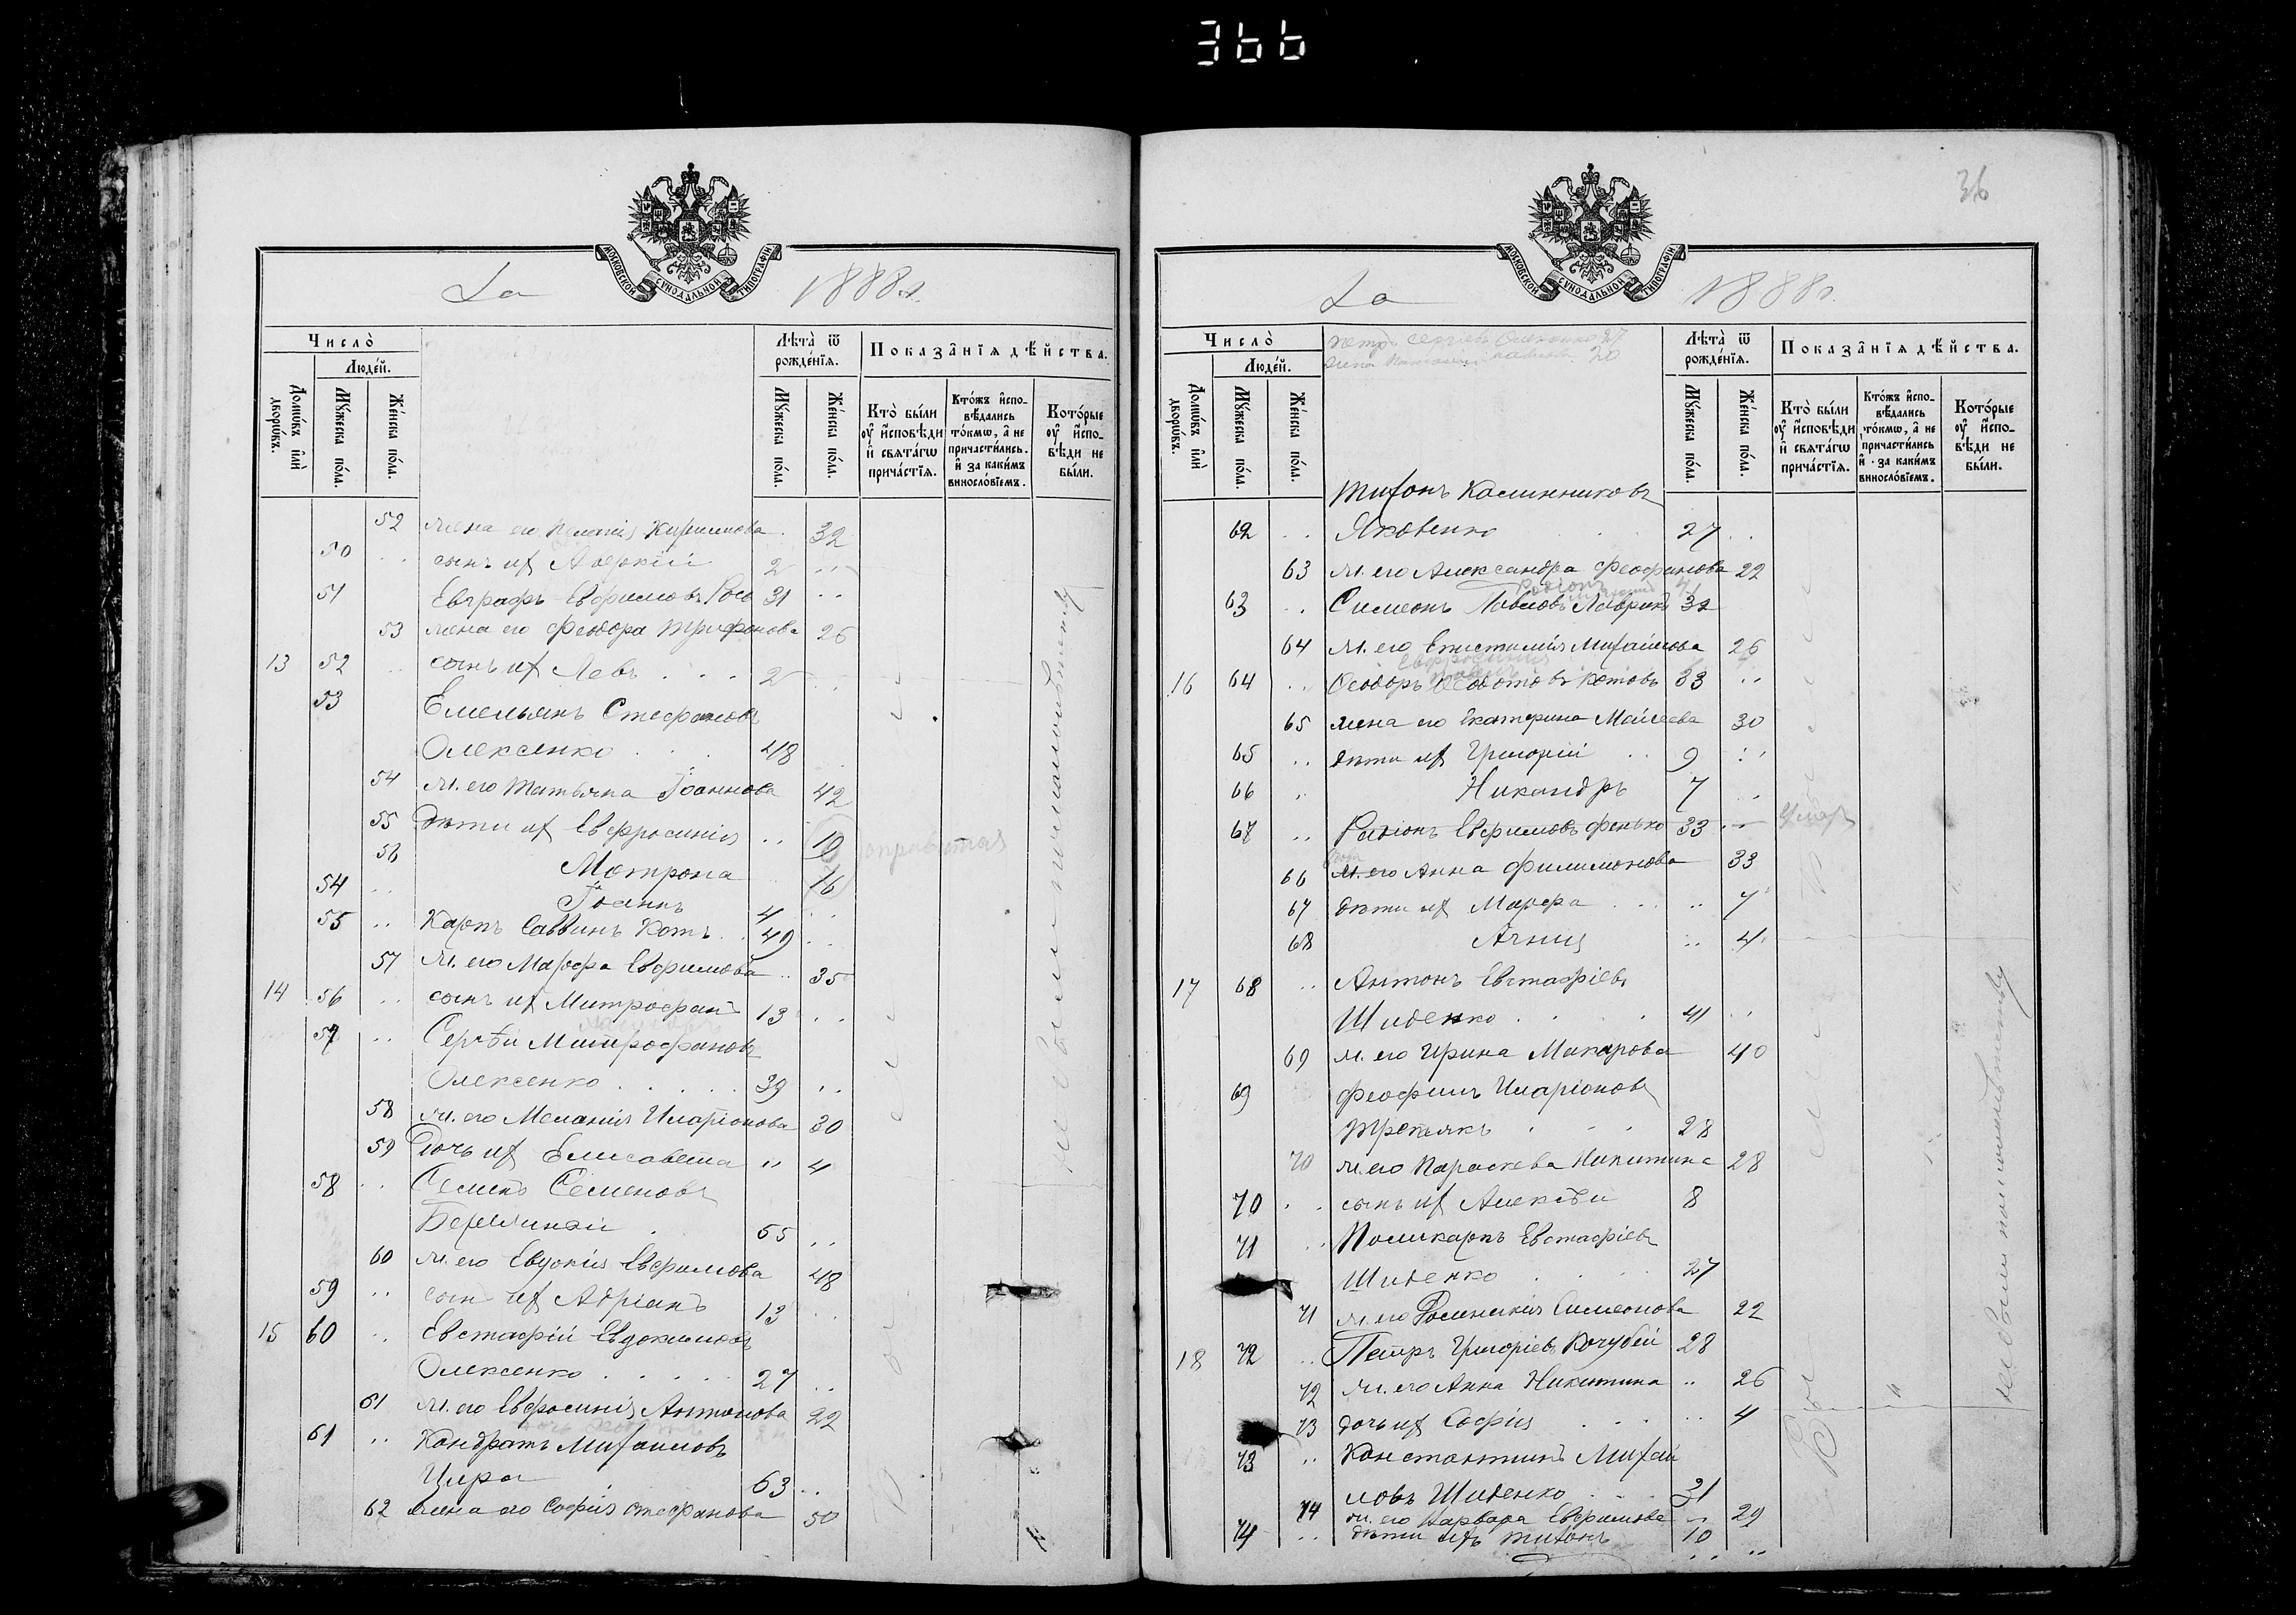 366
МОСКОВСКОЙ СѴНОДАЛЬНОЙ ТИПОГРАФІИ
За 1888 г.
Число̀
Людей.
Домѡ́въ и҆лѝ дворѡ́въ.
Мꙋ́жеска по́ла.
Же́нска по́ла.
Лѣ́та ѿ рожде́нїѧ.
Мꙋ́жеска по́ла.
Же́нска по́ла.
Показа̂нїѧ дѣ́йства.
Кто̀ бы́ли оу҆ и҆сповѣди и҆ свѧта́гѡ прича́стїѧ.
Кто́жъ и҆спо-вѣ́дались то́кмѡ, а҆ не причасти́лись. и҆ за каки́мъ винослові́емъ.
Кото́рые оу҆ и҆спо-вѣди не бы́ли.
52 жена его Кириллова 32
50 .. сынъ их 2 ..
51 Евграфъ Евфимовъ 31 ..
53 жена его Феодора Трифонова 26
13 52 .. сынъ их Левъ . . . 2 ..
53 Емельянъ Стефановъ
Олексенко . . 48 .
54 ж. его Татьяна Іоаннова 42
55 Дѣти их Евфросинія .. 19
56 Матрона 16
54 .. Іоаннъ 4 ..
55 .. Карпъ Саввинъ Котъ . . 49 ..
57 ж. его Марфа Евфимова .. 35
14 56 .. сынъ их Митрофанъ 13 ..
57 .. Сергѣй Митрофановъ
Олексенко . . . . . 39 ..
58 ж. его Меланія Иларіонова 30
59 Дочь их Елисавета " 4
58 .. Семенъ Семеновъ
. 65 ..
60 ж. его Евдокія Евфимова 48
59 .. сынъ их Адріанъ 13 ..
15 60 .. Евстафій Евдокимовъ
Олексенко . . . . . 27 ..
61 ж. его Евфросинія Антонова 22
61 .. Кондратъ Михаиловъ
63 ..
62 жена его Софія Стефанова 50
не были по
36
МОСКОВСКОЙ СѴНОДАЛЬНОЙ ТИПОГРАФІИ
За 1888 г.
Петръ Сергіевъ 27
жена 20
Число̀
Людей.
Домѡ́въ и҆лѝ дворѡ́въ.
Мꙋ́жеска по́ла.
Же́нска по́ла.
Лѣ́та ѿ рожде́нїѧ.
Мꙋ́жеска по́ла.
Же́нска по́ла.
Показа̂нїѧ дѣ́йства.
Кто̀ бы́ли оу҆ и҆сповѣди и҆ свѧта́гѡ прича́стїѧ.
Кто́жъ и҆спо-вѣ́дались то́кмѡ, а҆ не причасти́лись и҆ за каки́мъ винослові́емъ.
Кото́рые оу҆ и҆спо-вѣди не бы́ли.
Тихонъ Калинниковъ
62 .. Яковенко 27 ..
63 ж. его Александра Феофанова 22
63 .. Симеонъ Павловъ Лаврикъ 32
64 ж. его Епистимія Михаилова 26
Евфросинія
16 64 .. Феодоръ Котовъ 33 ..
65 жена его Екатерина Моисеева 30
65 .. дѣти их Григорій .. 9 ..
66 . Никандръ 7 ..
67 .. Родіонъ Евфимовъ Фенько 33 .. умеръ
вдова
66 ж. его Анна Филимонова 33
67 дѣти их Марфа .. 7
68 Агнія .. 4
17 68 .. Антонъ Евстафіевъ
Шиденко . . . . 41 ..
69 ж. его Ирина Макарова 40
69 Феофилъ Иларіоновъ
Третьякъ . . . 28
70 ж. его Параскева Никитина 28
70 .. сынъ их Алексѣй 8
71 .. Поликарпъ Евстафіевъ
Шиденко . . . 27
71 ж. его Симеонова 22
18 72 .. Петръ Григоріевъ Кочубей 28
72 ж. его Анна Никитина .. 26
73 дочь их Софія . . . .. 4
73 .. Константинъ Михаи
ловъ Шиденко . . . 31
74 ж. его Варвара Евфимова 29
74 .. дѣти ихъ Тихонъ 10
не были по